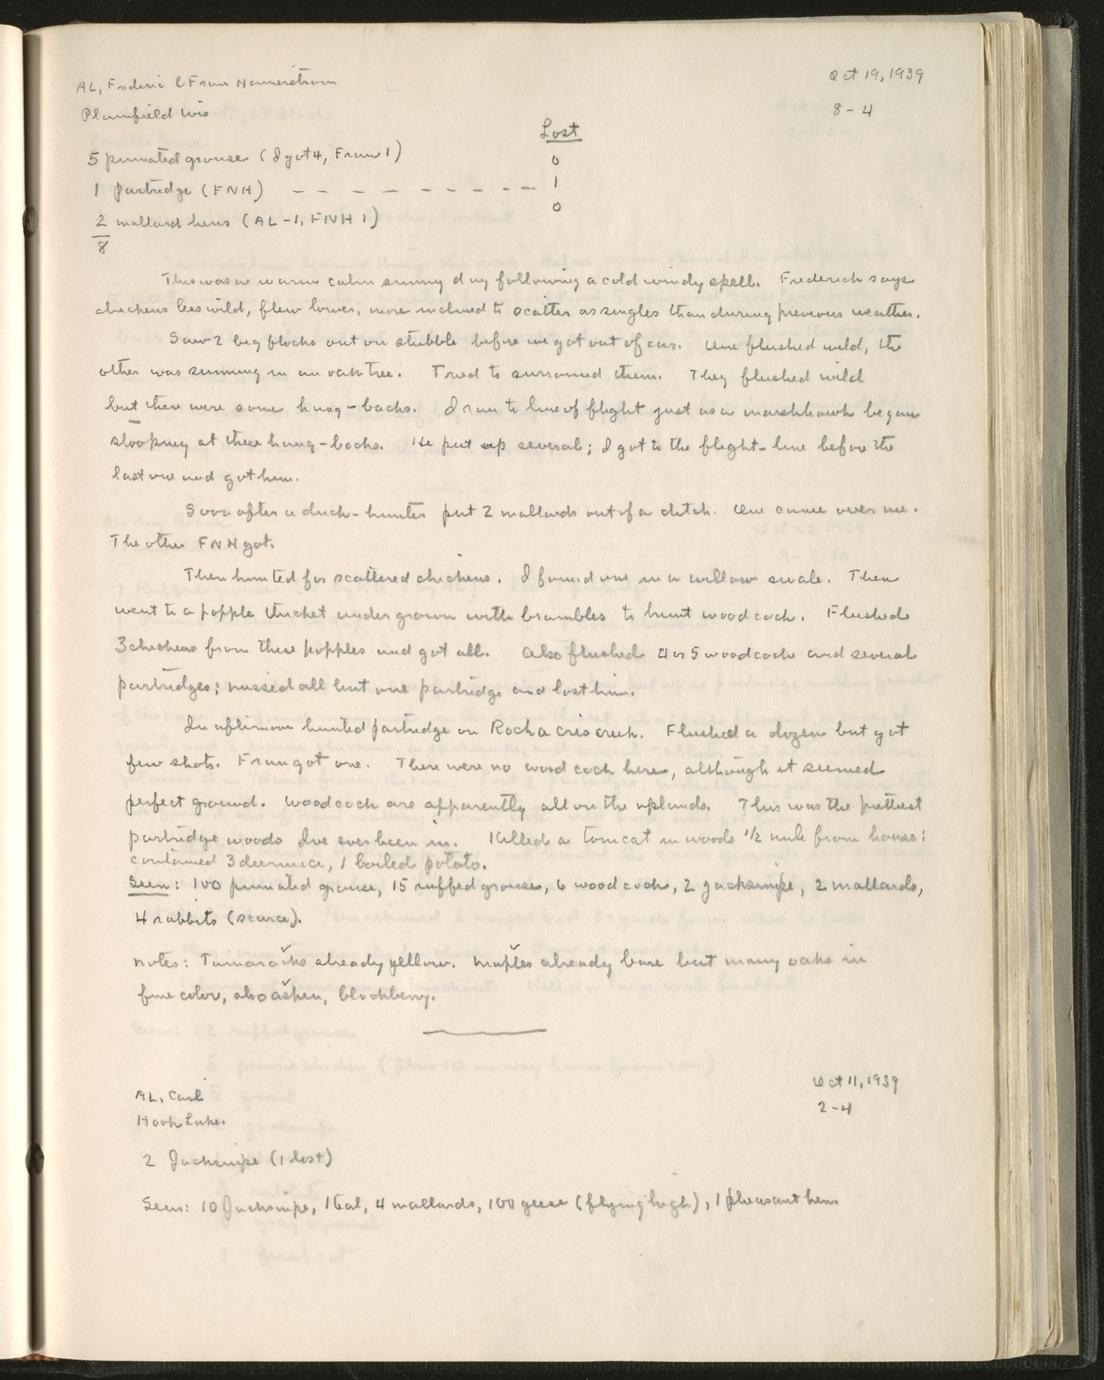 AL, Frederic & Fran Hamerstrom
Oct 19, 1939
Plainfield Wis
8-4
Lost
5 pinnated grouse (I got 4, Fran 1) 0
1 partridge (FNH) - - - - - - - - - 1
2 mallard hens (AL-1, FNH 1) 0
8
This was a warm calm sunny day following a cold windy spell. Frederick says
chickens less wild, flew lower, more inclined to scatter as singles than during previous weather.
Saw 2 big flocks out on stubble before we got out of car. One flushed wild, the
other was sunning in an oak tree. Tried to surround them. They flushed wild
but there were some hang-backs. I ran to line of flight just as a marshhawk began
stooping at these hang-backs. He put up several; I got to the flight-line before the
last one and got him.
Soon after a duck-hunter put 2 mallards out of a ditch. One came over me.
The other FNH got.
Then hunted for scattered chickens. I found one in a willow swale. Then
went to a popple thicket undergrown with brambles to hunt woodcock. Flushed
3 chickens from these popples and got all. Also flushed 4 or 5 woodcock and several
partridges; missed all but one partridge and lost him.
In afternoon hunted partridge on Roch a cris creek. Flushed a dozen but got
few shots. Fran got one. There were no woodcock here, although it seemed
perfect ground. Woodcock are apparently all on the uplands. This was the prettiest
partridge woods Ive ever been in. Killed a tomcat in woods 1/2 mile from house:
contained 3 deermice, 1 boiled potato.
Seen: 100 pinnated grouse, 15 ruffed grouse, 6 woodcock, 2 jacksnipe, 2 mallards,
4 rabbits (scarce).
Notes: Tamaracks already yellow. Maples already bare but many oaks in
fine color, also aspen, blackberry.
AL, Carl
Oct 11, 1939
Hook Lake.
2-4
2 Jacksnipe (1 lost)
Seen: 10 Jacksnipe, 1 teal, 4 mallards, 100 geese (flying high), 1 pheasant hen